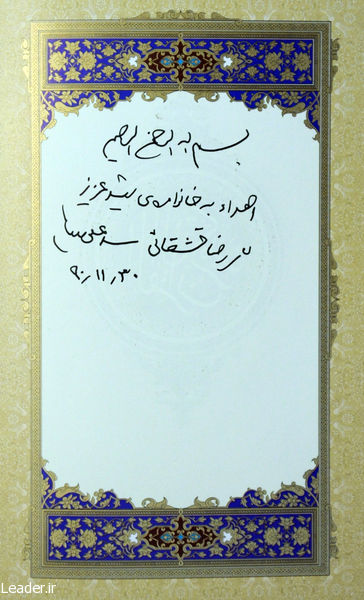 بسم الله الرحمن الرحیم
اهداء به خانواده‌ی شهید عزیز
رضا قشقائی سید علی خامنه‌ای
۹۰/۱۱/۳۰
Leader.ir